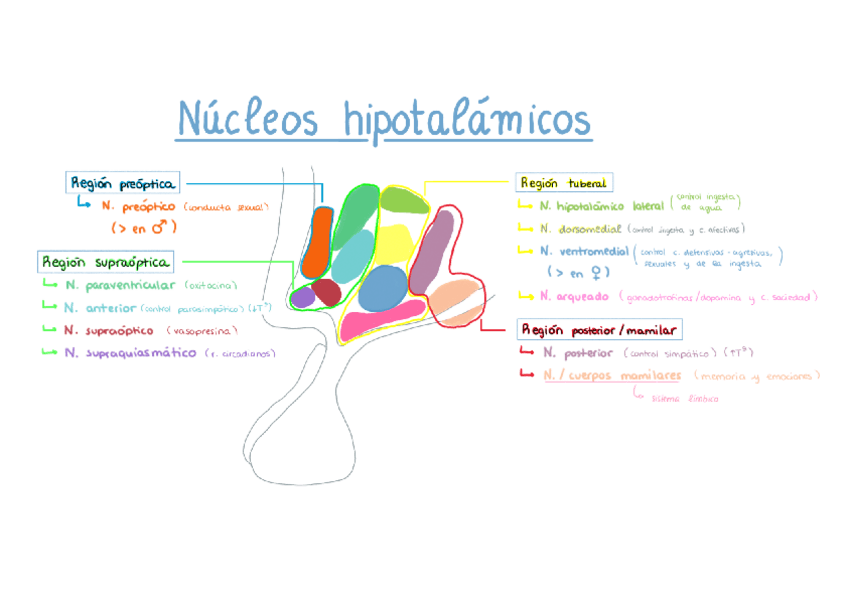 Núcleos hipotalámicos
Región preóptica
N. preóptico (conducta sexual)
(> en ♂)
Región supraóptica
N. paraventricular (oxitocina)
N. anterior (control parasimpático) (↓Tª)
N. supraóptico (vasopresina)
N. supraquiasmático (r. arcadianos)
Región tuberal
N. hipotalámico lateral (control ingesta
de agua)
N. dorsomedial (control ingesta y c. afectivas)
N. ventromedial (control c. defensivas-agresivas,
sexuales y de la ingesta)
(> en ♀)
N. arqueado (gonadotrofinas/dopamina y c. saciedad)
Región posterior/mamilar
N. posterior (control simpático) (↑Tª)
N./cuerpos mamilares (memoria y emociones)
sistema límbico